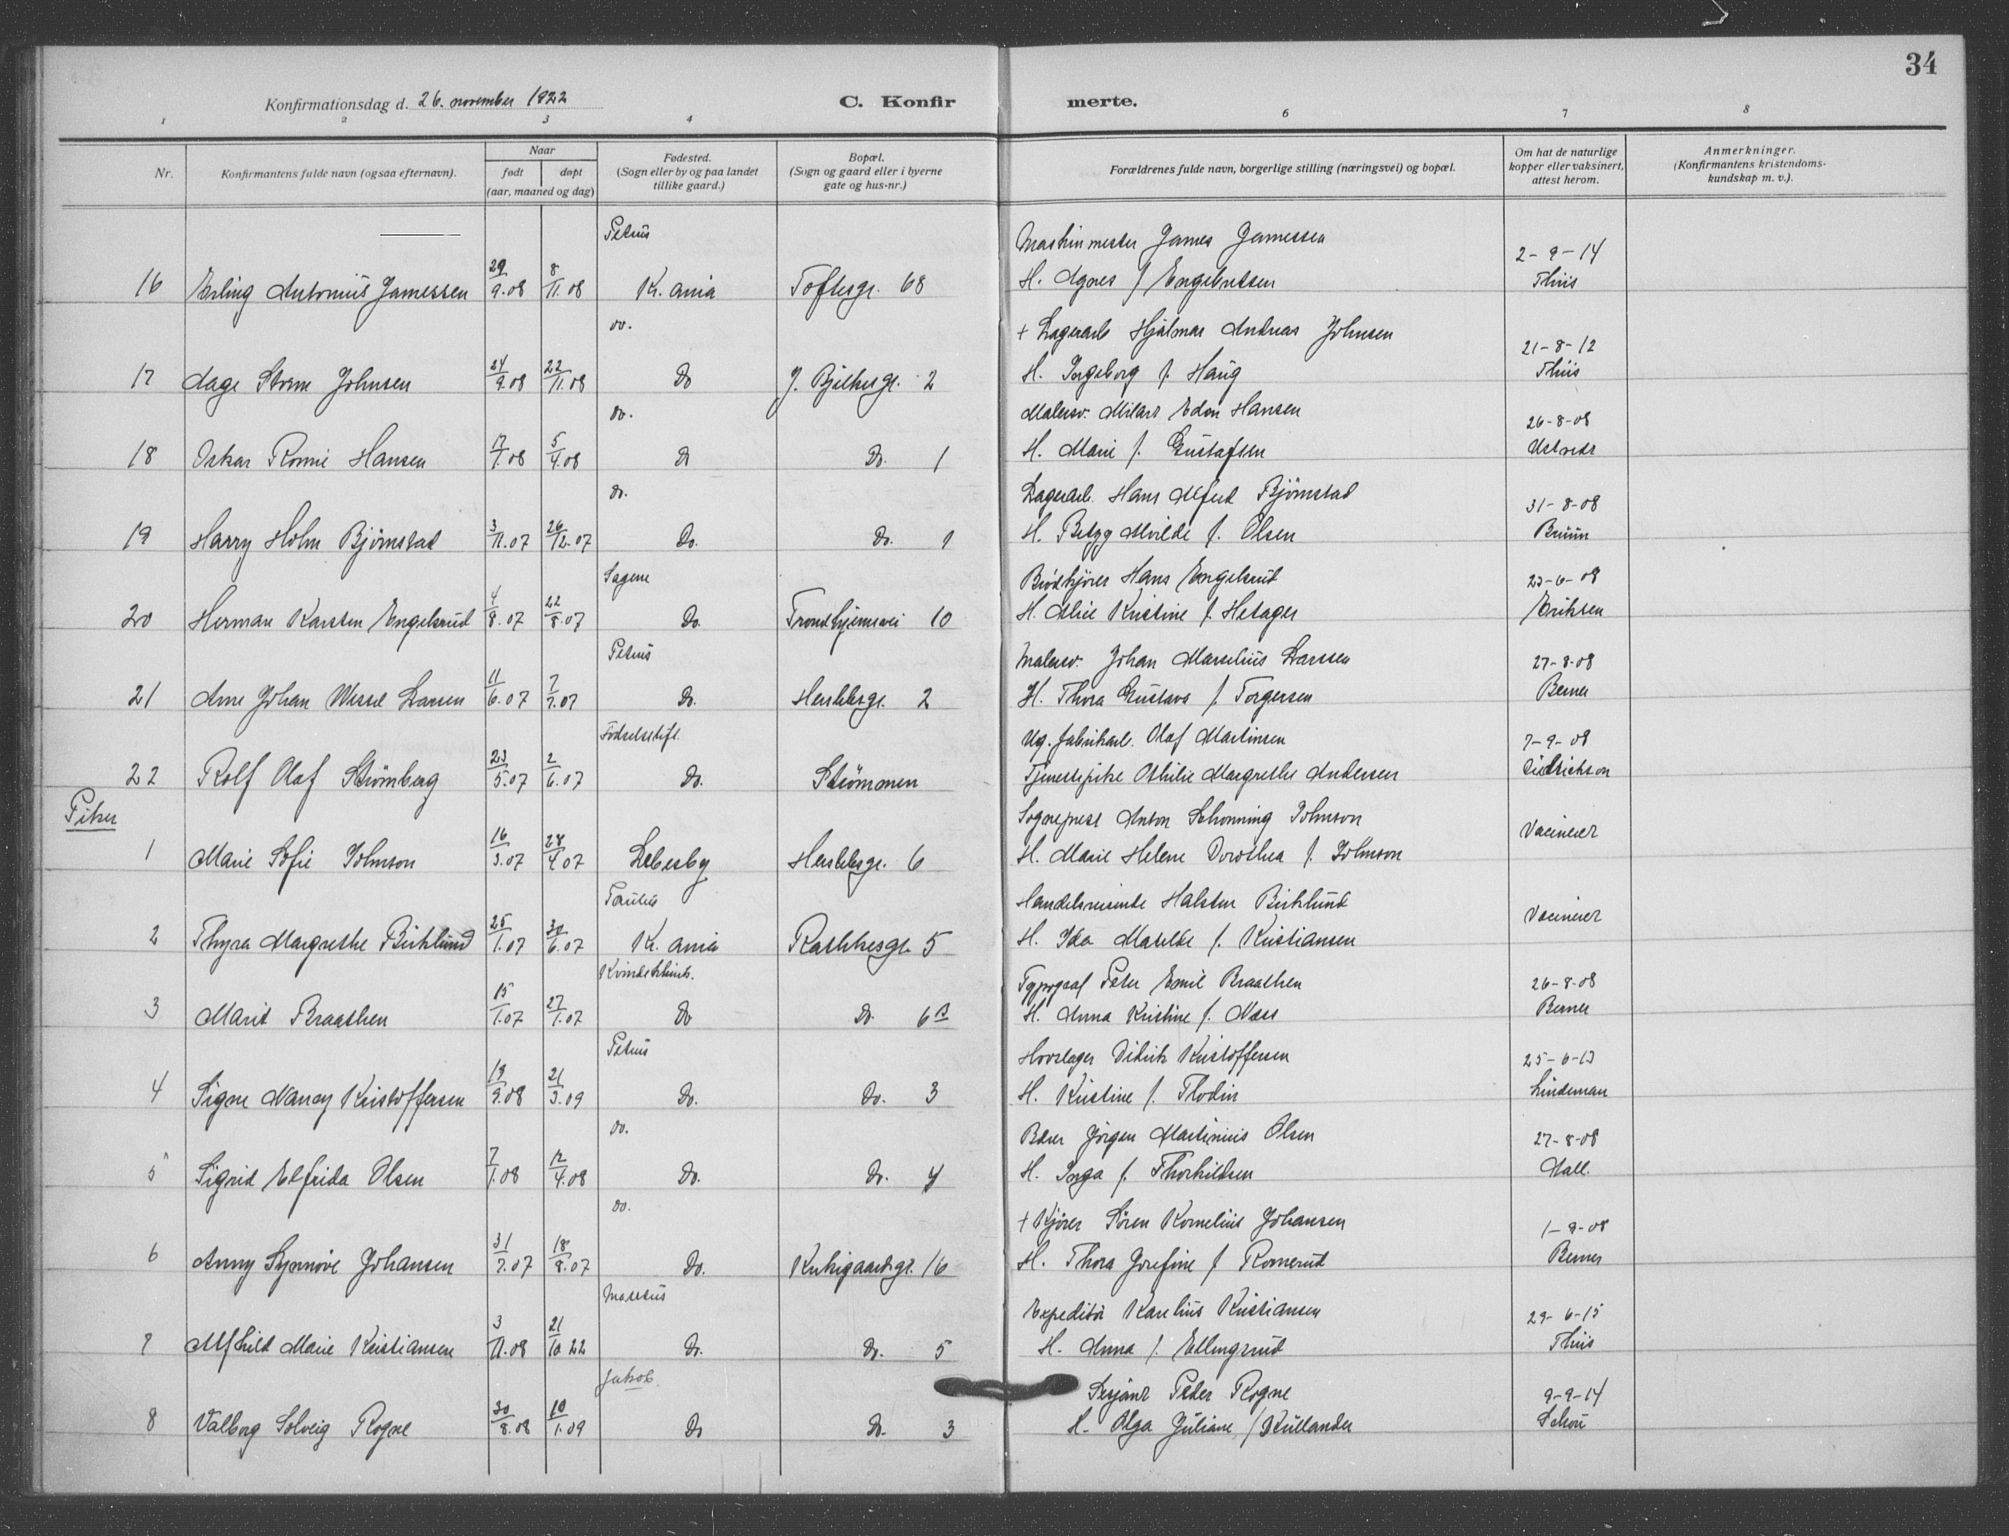 34
Konfirmationsdag d. 26. november 1922
C. Konfirmerte.
1 2 3 4 6 7 8
Nr.
Konfirmantens fulde navn (ogsaa efternavn).
Naar
født døpt
(aar, maaned og dag)
Fødested.
(Sogn eller by og paa landet
tillike gaard.)
Bopæl.
(Sogn og gaard eller i byerne
gate og hus-nr.)
Forældrenes fulde navn, borgerlige stilling (næringsvei) og bopæl.
Om hat de naturlige
kopper eller vaksinert,
attest herom.
Anmerkninger.
(Konfirmantens kristendoms-
kundskap m. v.).
Petrus Maskinmester James Jamessen 2-9-14
16 Erling Antonius Jamessen 29/9.08 8/11.08 K.ania Toftesgt. 68 H. Agnes f Engebretsen Thiis
do. + Lagerarb Hjalmar Andreas Johnsen 21-8-12
17 Aage Strøm Johnsen 24/9.08 22/11.08 Do J. Bjelkesgt. 2 H. Ingeborg f. Haug Thiis
do. Malersv. Edon Hansen 26-8-08
18 Oskar Hansen 17/1.08 5/4.08 Do Do. 1 H. Marie f. Gustafsen
do. Lagerarb. Hans Alfred Bjørnstad 31-8-08
19 Harry Holm Bjørnstad 3/11.07 26/12.07 Do. Do. 1 H. Betzy f. Olsen Bruun
Sagene Brødkjører Hans Engelsrud
20 Herman Karsten Engelsrud 4/8.07 22/8.07 Do. Trondhjemsvei 10 H. Alice Kristine f. Hetager Eriksen
Petrus Malersv. Johan Marselius Larssen 27-8-08
21 Arne Johan Wessel Larsen 11/6.07 7/7.07 Do. Herslebsgt. 2 H. Thora Gustava f. Torgersen Berner
Fødselsstift. Ug. fabrikarb. Olaf Martinsen 7-9-08
22 Rolf Olaf Strømberg 23/5.07 2/6.07 Do. Strømmen Tjenestepike Othilie Margrethe Andersen Didrichson
Piker
Sogneprest Anton Schonning Johnson Vaccinert
1 Marie Sofie Johnson 16/3.07 28/4.07 Lebesby Herslebsgt. 6 H. Marie Helene Dorothea f. Johnson
Paulus Handelsreisende Halsten Birklund Vaccinert
2 Thyra Margrethe Birklund 25/1.07 30/6.07 K.ania Rathkesgt. 5 H. Ida Matilde f. Kristiansen
Kvindeklinik. Typograf Peter Emil Braathen 26-8-08
3 Marit Braathen 15/1.07 27/1.07 Do Do. 6B H. Anna Kristine f. Næss Berner
Petrus Hovslager Didrik Kristoffersen 25-6-13
4 Signe Nancy Kristoffersen 19/9.08 21/3.09 Do. Do. 3 H. Kristine f. Flodin Lindeman
do. Bærer Jørgen Martinius Olsen 27-8-08
5 Sigrid Elfrida Olsen 7/1.08 12/4.08 Do. Do. 4 H. Inga f. Thorkildsen Mall.
do. + Kjører Søren Kornelius Johansen 1-9-08
6 Anny Synnøve Johansen 31/7.07 18/8.07 Do. Kirkegaardsgt. 16 H. Thora Josefine f Romerud Berner
Markus Expeditør Karelius Kristiansen 29-6-15
7 Alfhild Marie Kristiansen 3/11.08 21/10 22 Do. Do. 5 H. Anna f. Ellingsrud Thiis
Jakob. Sersjant Peder Rogne 9-9-14
8 Valborg Solveig Rogne 30/8.08 10/1.09 Do Do. 3 H. Olga Juliane f Kullander Schou